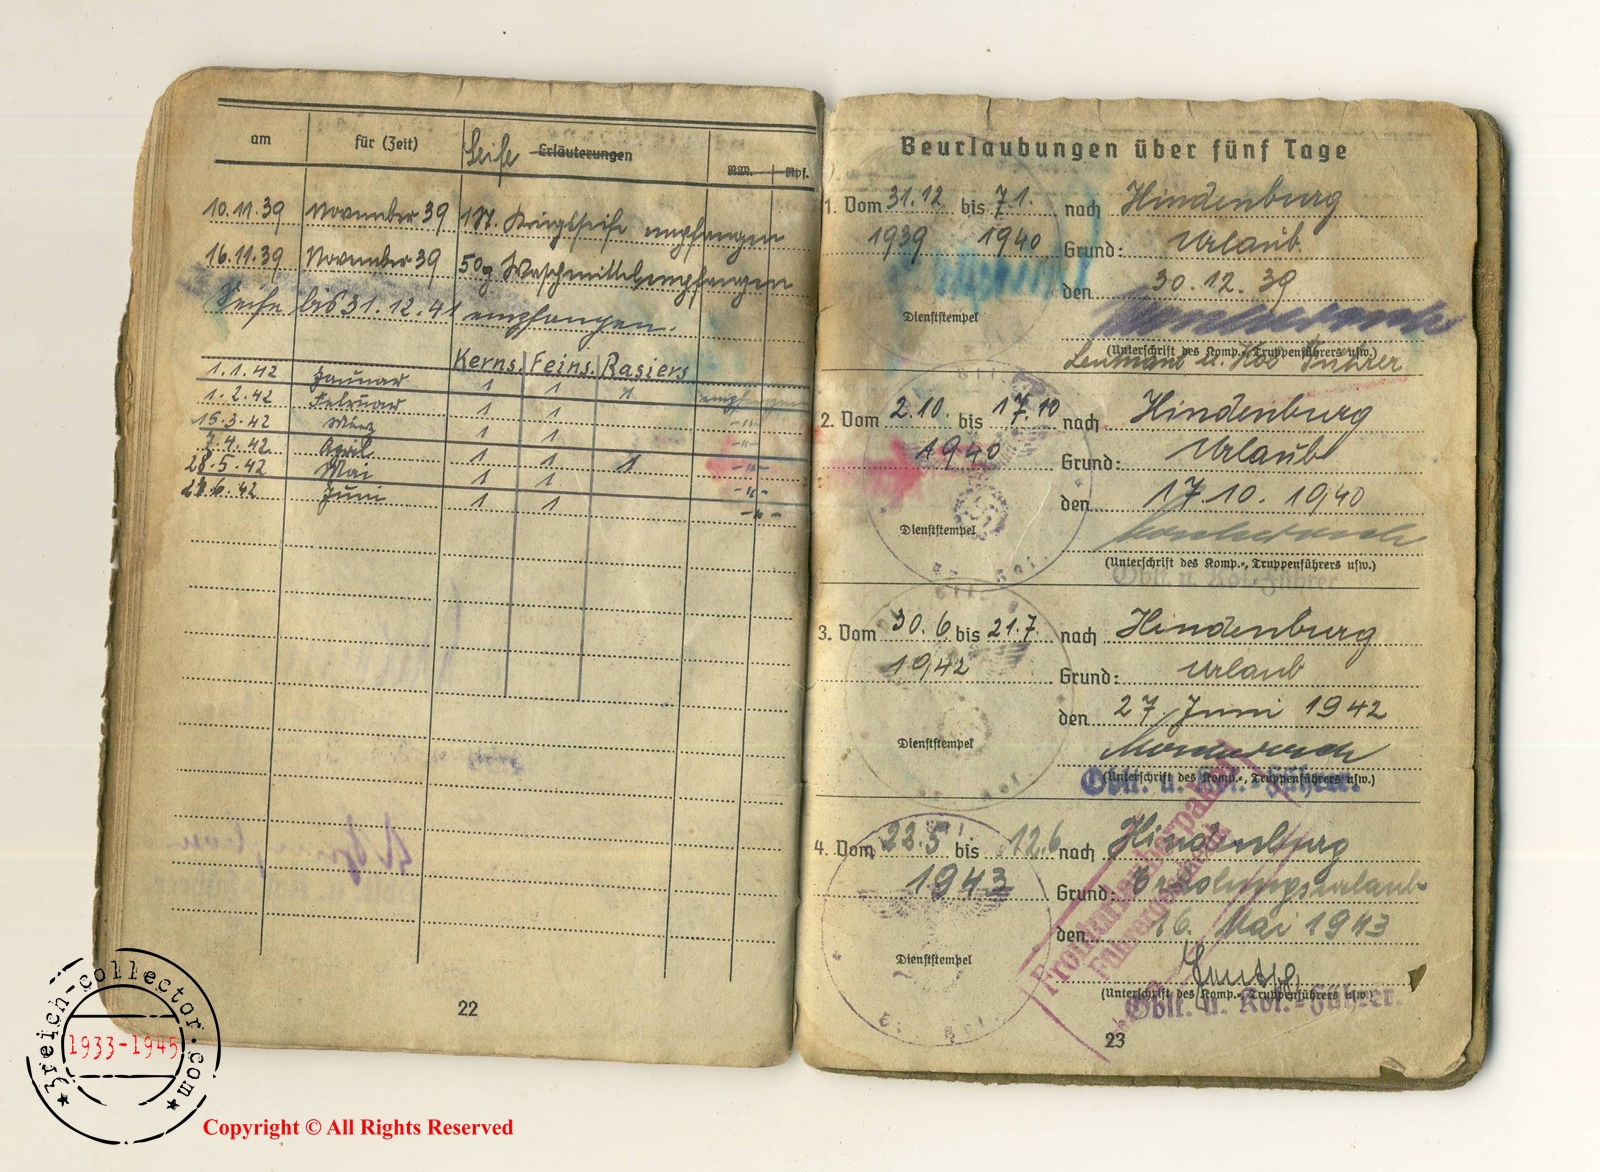 am für (Zeit) Seife Erläuterungen RM. Rpf.
10.11.39 November 39 1 St. Kriegsseife empfangen
16.11.39 November 39 50g Waschmittel empfangen
Seife bis 31.12.41 empfangen.
Kerns. Feins. Rasiers
1.1.42 Januar 1 1 1 empfangen
1.2.42 Februar 1 1 -"-
15.3.42 März 1 1 -"-
7.4.42 April 1 1 1 -"-
28.5.42 Mai 1 1 -"-
21.6.42 Juni 1 1 -"-
22
Beurlaubungen über fünf Tage
1. Vom 31.12 bis 7.1. nach Hindenburg
1939 1940 Grund: Urlaub
den 30.12.39
Dienststempel
(Unterschrift des Komp.-, Truppenführers usw.)
Leutnant u. Führer
2. Vom 2.10. bis 17.10 nach Hindenburg
1940 Grund: Urlaub
den 17.10.1940
Dienststempel
(Unterschrift des Komp.-, Truppenführers usw.)
Oblt. u. Kol.-Führer
3. Vom 30.6 bis 21.7. nach Hindenburg
1942 Grund: Urlaub
den 27. Juni 1942
Dienststempel
(Unterschrift des Komp.-, Truppenführers usw.)
Oblt. u. Kol.-Führer.
4. Vom 22.5 bis 12.6 nach Hindenburg
1943 Grund: Erholungsurlaub
den 16. Mai 1943
Dienststempel
(Unterschrift des Komp.-, Truppenführers usw.)
Oblt. u. Kol.-Führer.
Fronturlauberpaket
Führergeschenk
23
3reich-collector.com
1933-1945
Copyright © All Rights Reserved